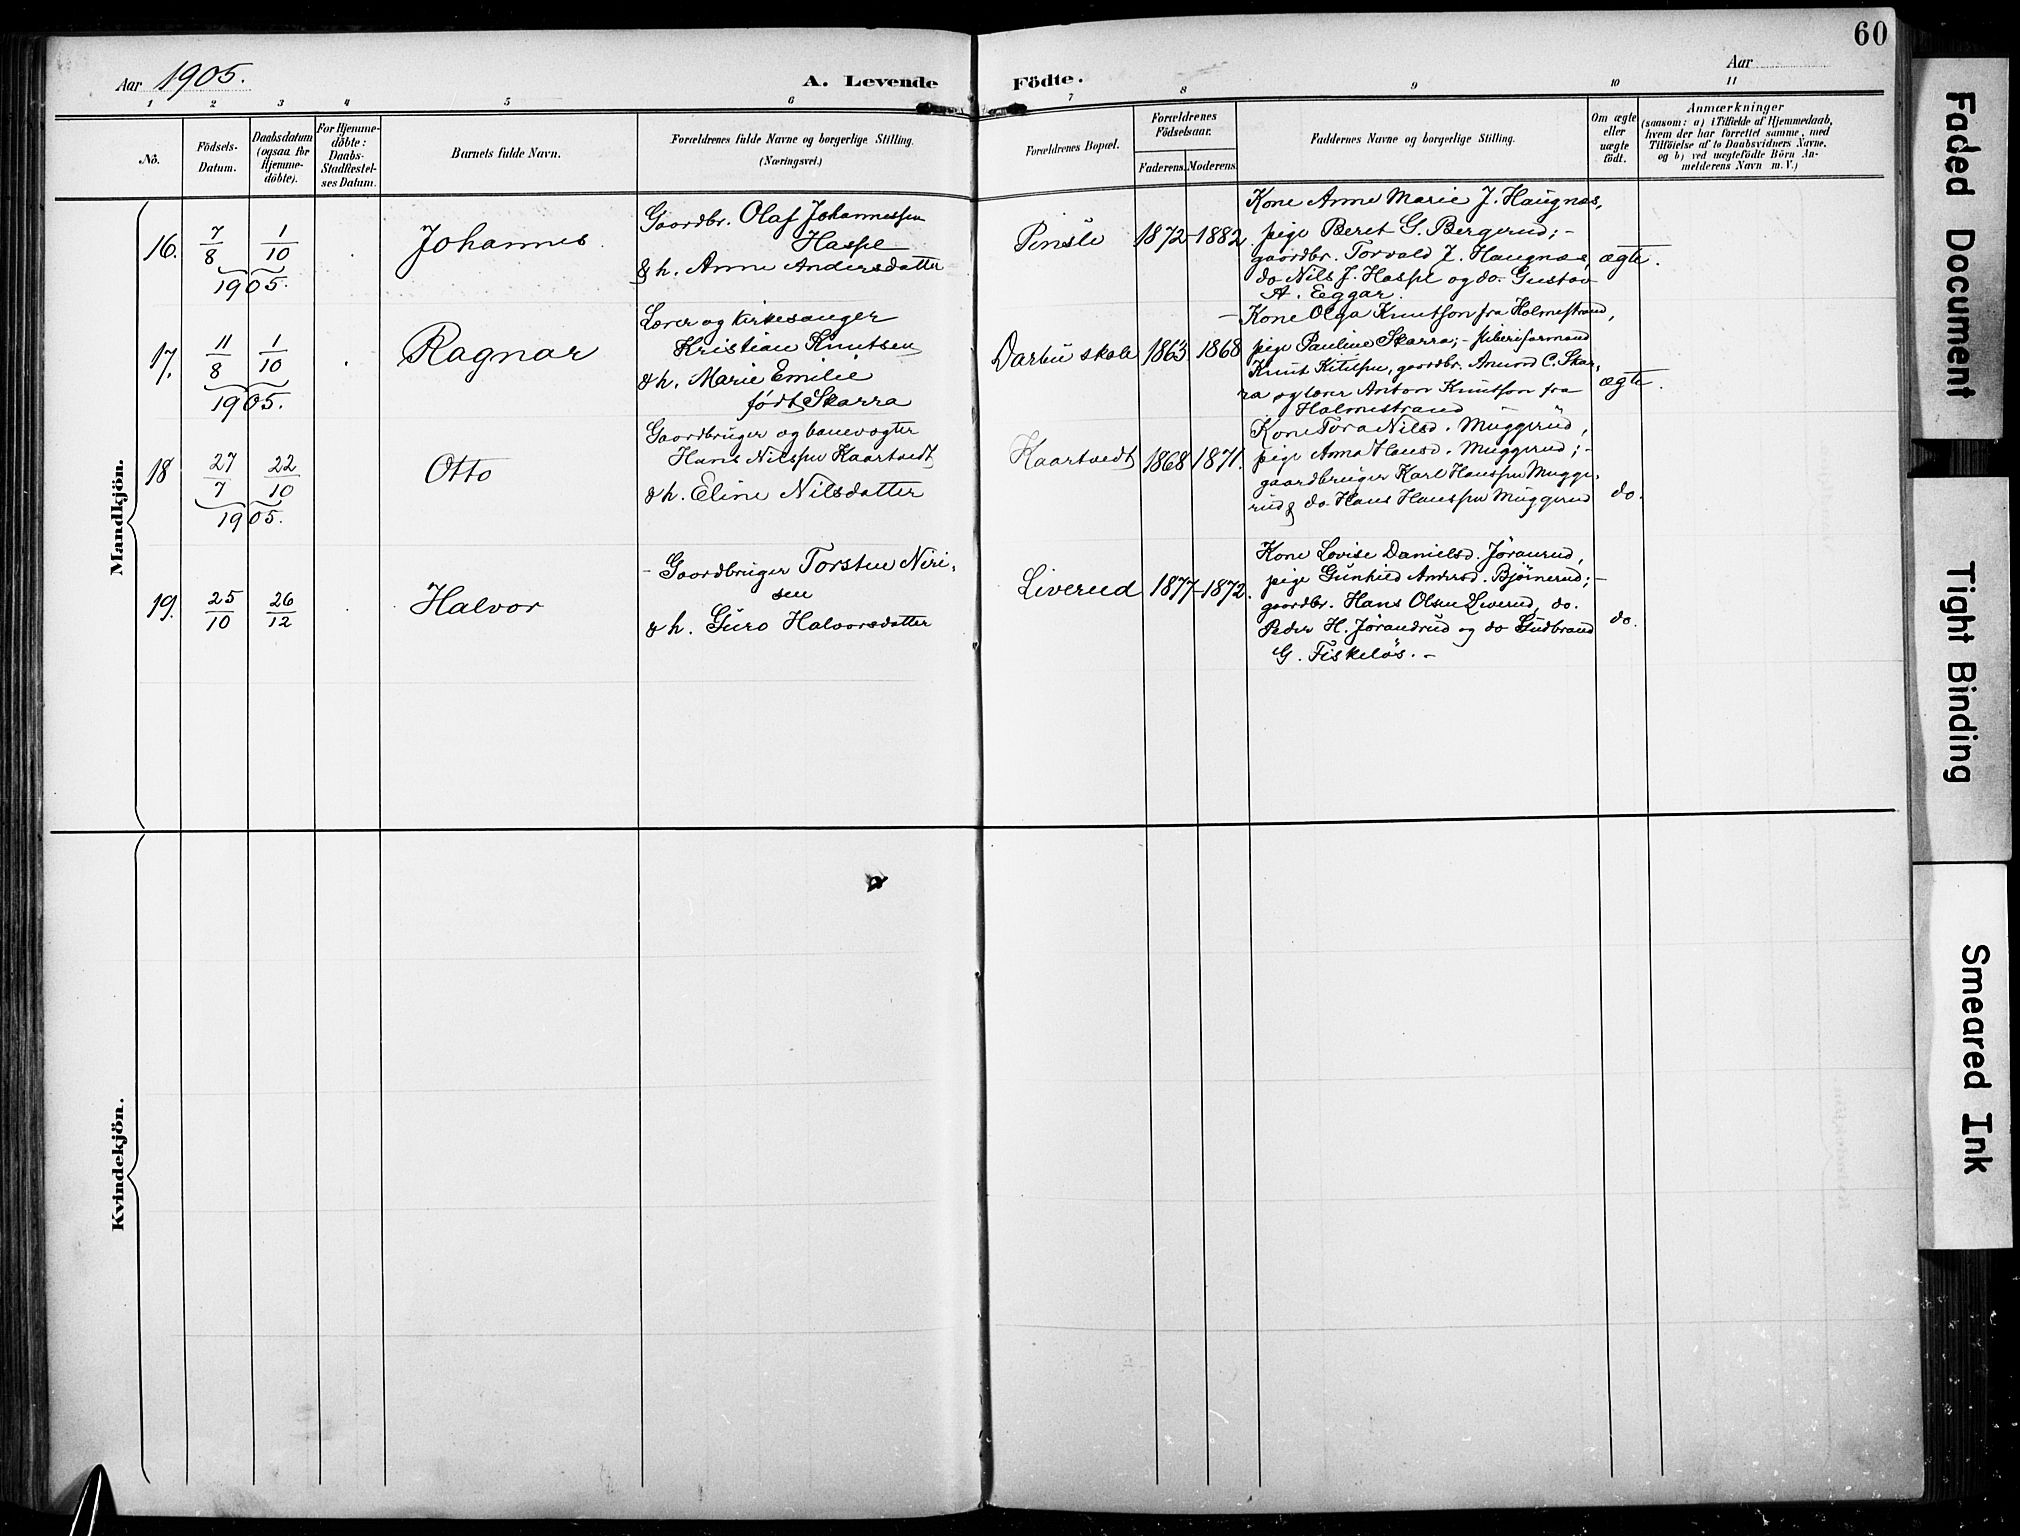 60
Aar 1905.
A. Levende Födte.
Aar
1 2 3 4 5 6 7 8 9 10 11
No.
Födsels-Datum.
Daabsdatum (ogsaa for Hjemme-döbte).
For Hjemme-döbte: Daabs-Stadfæstel-ses Datum.
Barnets fulde Navn.
Forældrenes fulde Navne og borgerlige Stilling.
(Næringsvei.)
Forældrenes Bopæl.
Forældrenes Födselsaar.
Faderens. Moderens.
Faddernes Navne og borgerlige Stilling.
Om ægte eller uægte födt.
Anmærkninger
(saasom: a) i Tilfælde af Hjemmedaab,
hvem der har forrettet samme, med
Tilföielse af to Daabsvidners Navne,
og b) ved uægtefödte Börn An-
melderens Navn m. V.)
Mandkjön.
16. 7/8 1/10 1905. Johannes.
Gaardbr. Olaf Johannessen
Haspl
& h. Anne Andersdatter
Pinsle 1872-1882
Kone Anne Marie J. Haugnæs,
pige Beret G. Bergerud;-
gaardbr. Torvald J. Haugnæs,
do Nils J. Haspl og do. Gustav
A. Eggar.
ægte.
17. 11/8 1/10 1905. Ragnar
Lærer og kirkesanger
Kristian Knutsen
& h. Marie Emilie
født Skarra
Darbu skole 1863 1868
- Kone Olga Knutson fra Holmestrand,
pige Pauline Skarra;-
Knut Kittilsen, gaardbr. Amund C. Skar-
ra og lærer Anton Knutson fra
Holmestrand
ægte.
18 27/7 22/10 1905. Otto
Gaardbruger og banevogter
Hans Nilssen Kaartvedt
& h. Eline Nilsdatter
Kaartvedt 1868 1871.
Kone Tora Nilsd. Muggerud,
pige Anna Hansd. Muggerud;-
gaardbruger Karl Hanssen Mugge-
rud & do Hans Hanssen Muggerud
do.
19. 25/10 26/12 Halvor
- Gaardbruger Torsten Niri-
sen
& h. Guro Halvorsdatter
Liverud 1877-1872.
Kone Lovise Danielsd. Jøranrud,
pige Gunhild Andersd. Bjørnerud;-
gaardbr. Hans Olsen Liverud, do.
Peder H. Jørandrud og do Gudbrand
G. Fiskeløs.-
do.
Kvindekjön.
Faded Document
Tight Binding
Smeared Ink